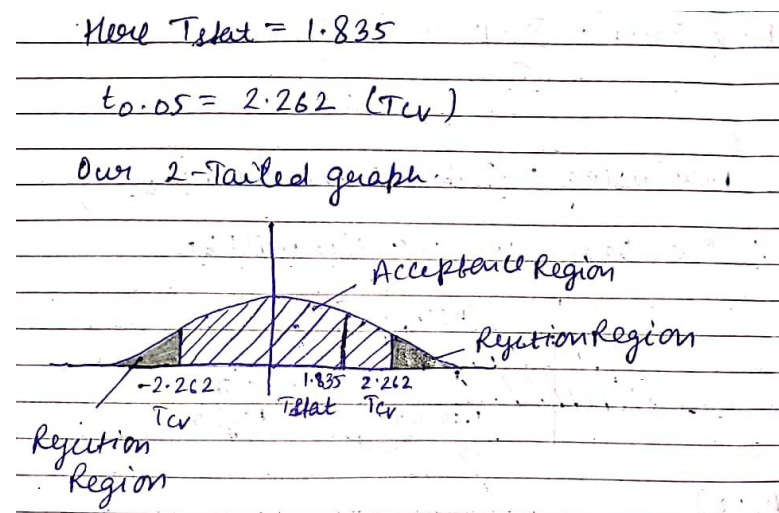 Here Tstat = 1.835
t0.05 = 2.262 (Tcv)
Our 2-Tailed graph.
Acceptance Region
Rejection Region
-2.262 1.835 2.262
Tcv Tstat Tcv
Rejection
Region